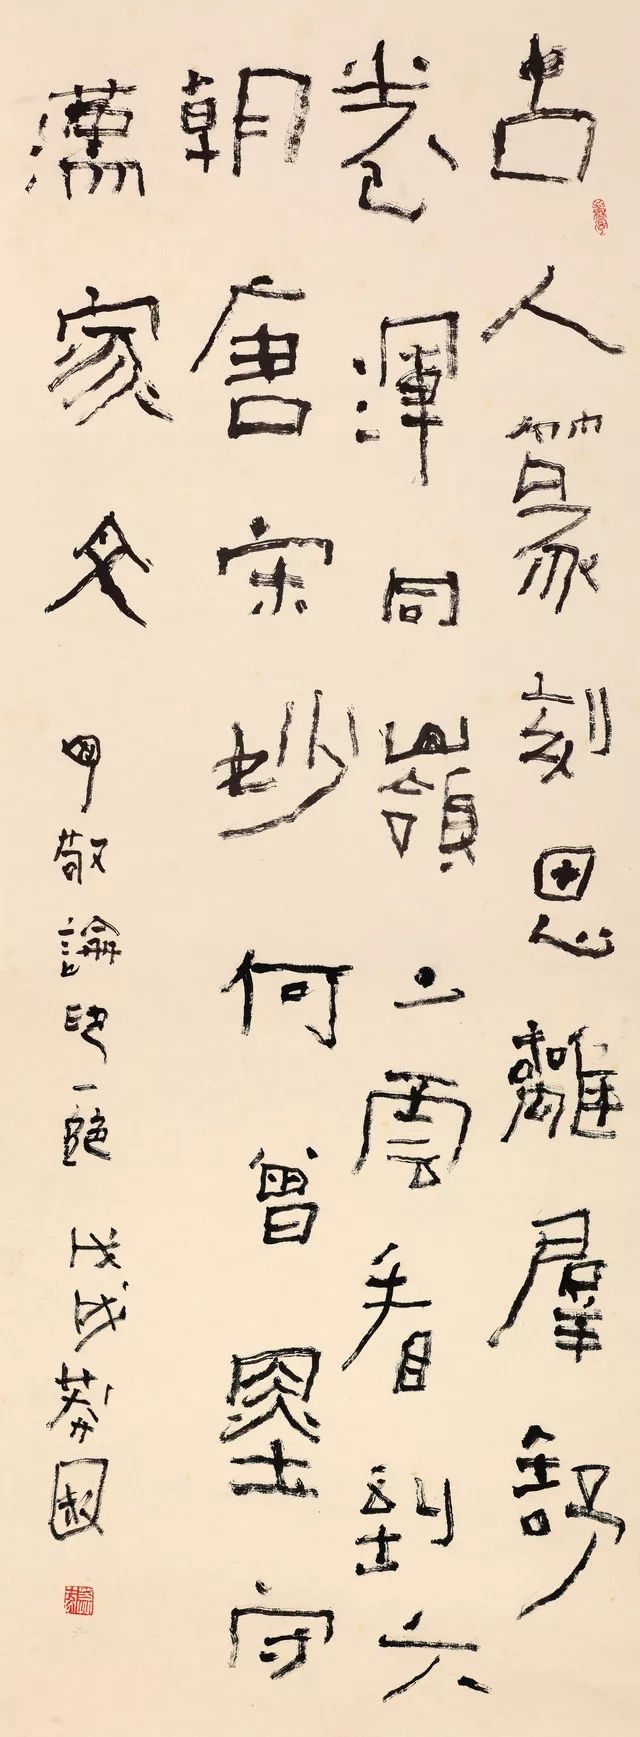 古人篆刻思離群舒
卷渾同嶺上雲看到六
朝唐宋妙何曾墨守
漢家文
丁敬論印一絕 戊戌 莽國